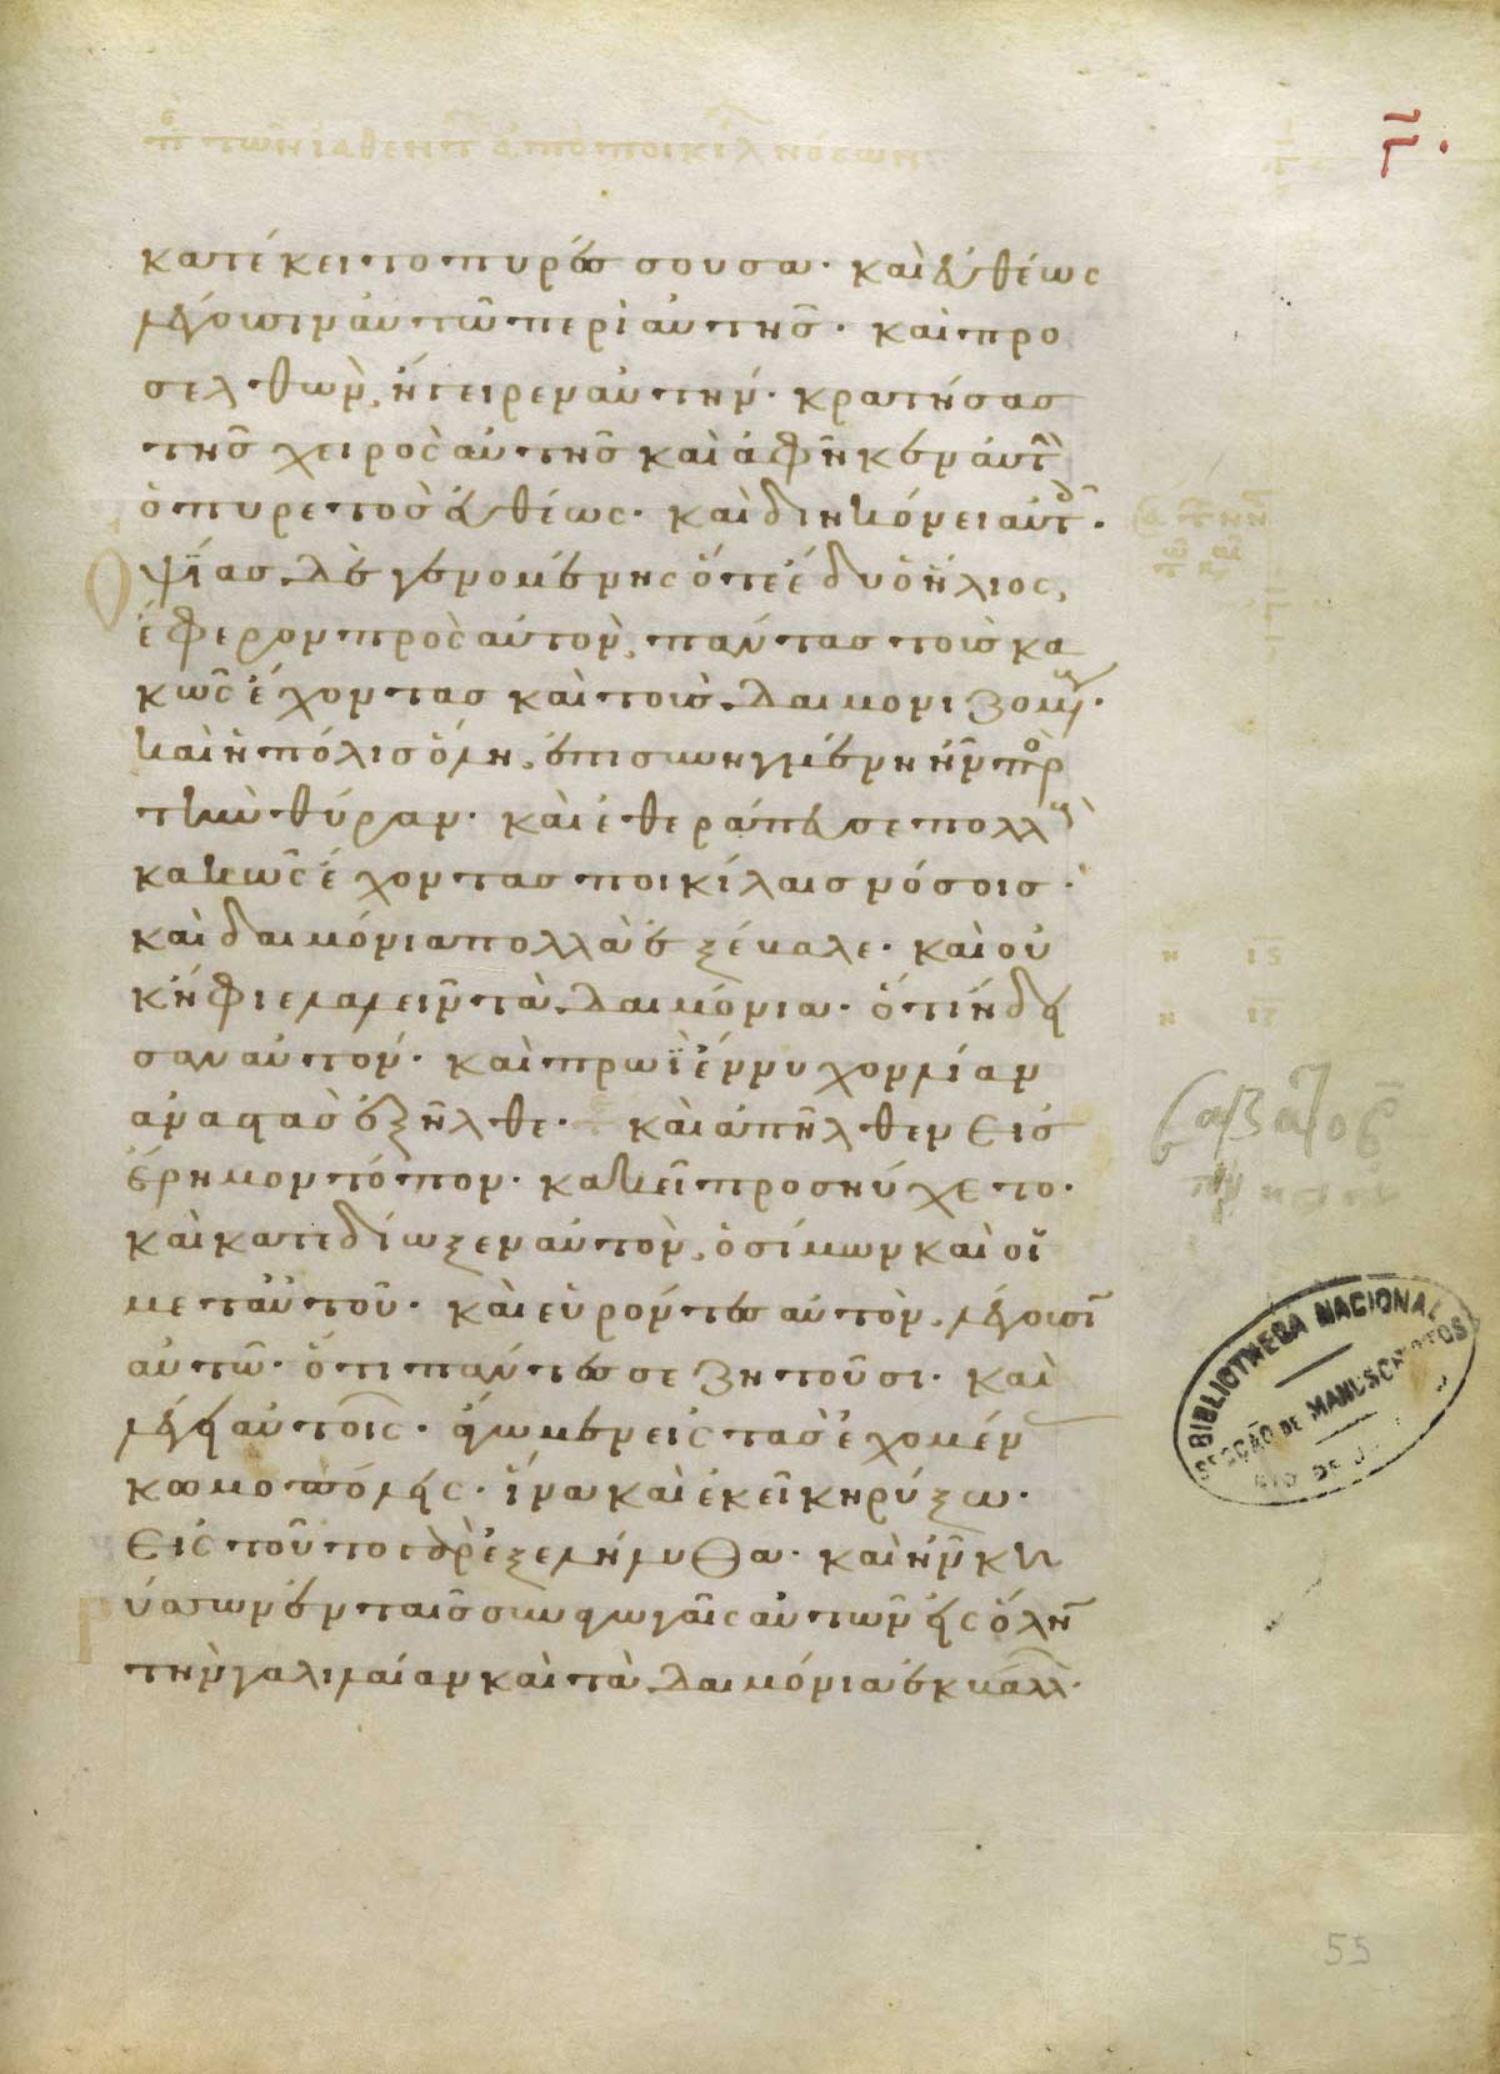 π τῶν ἰαθέντ ἀπὸ ποικίλ νόσων
Γ.
κατέκειτο πυρέσσουσα· καὶ εὐθέως
λέγουσιν αὐτῶ περὶ αὐτῆσ· καὶ προ
σελθὼν, ἤγειρεν αὐτήν· κρατήσασ
τῆσ χειρὸς αὐτῆσ καὶ ἀφῆκεν ἀυτὴ
ὁ πυρετὸσ εὐθέως· καὶ διηκόνει αὐτ·
Ὀψΐασ δὲ γενομένης ὅτε ἔδυ ὁ ἥλιος,
ἔφερον πρὸς αὐτὸν, πάντασ τοὺσ κα
κῶς ἔχοντασ καὶ τοὺσ δαιμονιζομ·
καὶ ἡ πόλισ ὅλη, ἐπισυνηγμένη ἦν πρ
τὴν θύραν· καὶ ἐθεράπευσε πολλ
κακῶς ἔχοντασ ποικίλαισ νόσοισ·
καὶ δαιμόνια πολλὰ ἐξέβαλε· καὶ οὐ
κ ἤφιε λαλεῖν τὰ δαιμόνια· ὅτι ἤδει
σαν αὐτόν· καὶ πρωῒ ἔννυχον λίαν
ἀναστὰσ ἐξῆλθε· καὶ ἀπῆλθεν εἰσ
ἔρημον τόπον· κακεῖ προσηύχετο·
καὶ κατεδίωξεν αὐτὸν, ὁ σίμων καὶ οἱ
μετ αὐτοῦ· καὶ εὑρόντεσ αὐτὸν, λέγουσῖ
αὐτῶ· ὅτι πάντεσ σε ζητοῦσι· καὶ
λέγει αὐτοῖς· ἄγωμεν εἰς τὰσ ἐχομέν
κωμοπόλεις· ἵνα καὶ ἐκεῖ κηρύξω·
εἰς τοῦτο γὰρ ἐξελήλυθα· καὶ ἦν κη
ρύσσων ἐν ταῖσ συναγωγαῖς αὐτῶν εἰς ὅλην
τὴν γαλιλαίαν καὶ τὰ δαιμόνια ἐκβάλλ·
σαβατο
BIBLIOTHECA NACIONAL
SECÇÃO DE MANUSCRIPTOS
RIO DE J
55